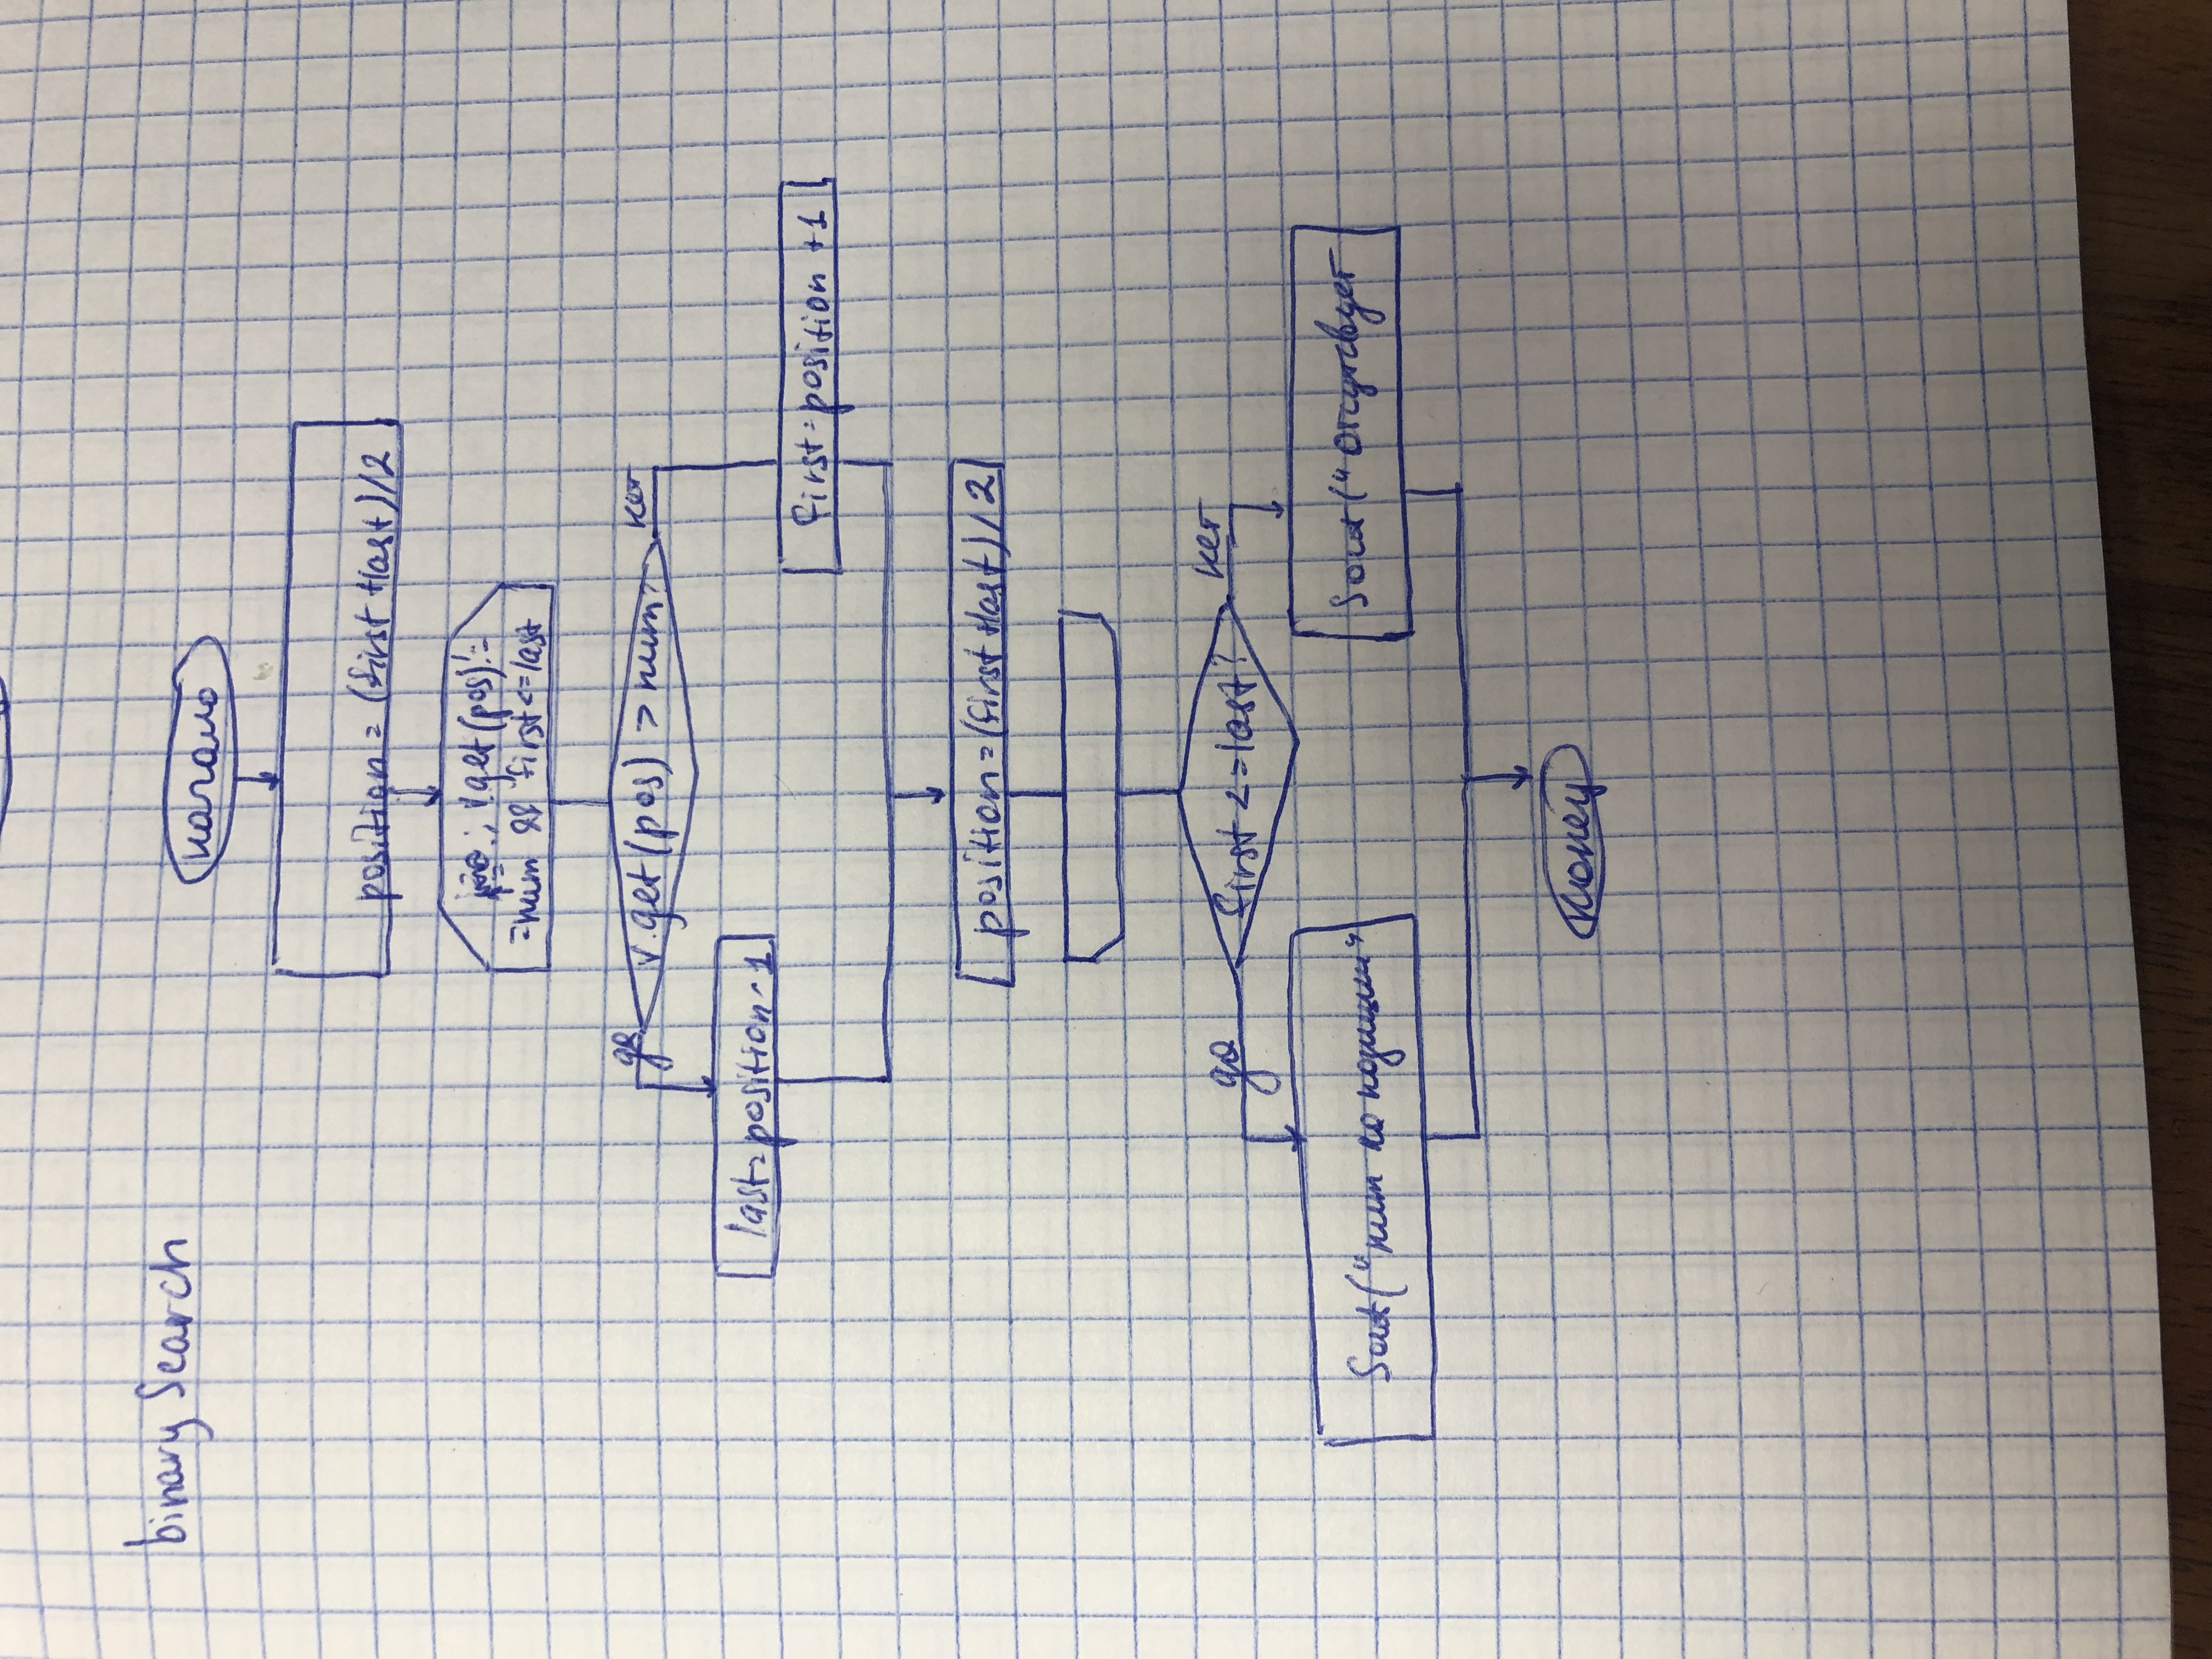 binary Search
начало
position = (first + last) / 2
; v.get(pos)!=
=num && first<=last
да
v.get(pos) > num?
нет
last=position-1
first=position +1
position=(first+last)/2
да
first<=last?
нет
Sout("num на позиции"
Sout("Отсутсвует
конец